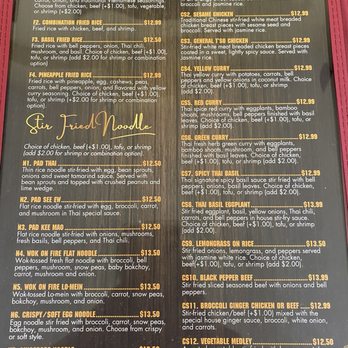 mushroom, and bell peppers. Choice of
chicken, beef (+$1.00), tofu, vegetable
or shrimp (+$2.00)
F2. COMBINATION FRIED RICE $12.99
Fried rice with chicken, beef, and shrimp.
F3. BASIL FRIED RICE $12.50
Fried rice with bell peppers, onion, Thai chili,
mushroom, and basil. Choice of chicken, beef
(+$1.00), tofu, or shrimp (add $2.00 for shrimp
or combination option)
F4. PINEAPPLE FRIED RICE $12.99
Fried rice with pineapple, egg, cashew, peas,
carrots, bell peppers, onion, and flavored with yellow
curry seasoning. Choice of chicken, beef (+$1.00),
tofu, or shrimp (+$2.00 for shrimp or combination
option)
Stir Fried Noodle
Choice of chicken, beef (+$1.00), tofu, or shrimp
(add $2.00 for shrimp or combination option)
N1. PAD THAI $12.50
Thin rice noodle stir-fried with egg, bean sprouts,
onions and sweet tamarind sauce. Served with
bean sprouts and topped with crushed peanuts and
lime wedge.
N2. PAD SEE EW $12.50
Flat rice noodle stir-fried with egg, broccoli, carrot,
and mushroom in Thai special sauce.
N3. PAD KEE MAO $12.50
Flat rice noodle stir-fried with onions, mushrooms,
fresh basil, bell peppers, and Thai chili.
N4. WOK ON FIRE FLAT NOODLE $13.50
Wok-tossed fresh flat noodle with broccoli, bell
peppers, mushroom, snow peas, baby bokchoy,
carrot, mushroom, and onion.
N5. WOK ON FIRE LO-MEIN $13.50
Wok-tossed Lo-mein with broccoli, carrot, snow peas,
bokchoy, mushroom, and onion.
N6. CRISPY/SOFT EGG NOODLE $13.50
Egg noodle stir fried with broccoli, carrot, snow peas,
bokchoy, mushroom, and onion. Choose from crispy
or soft style.
broccoli and jasmine rice.
CS2. SESAME CHICKEN $12.99
Traditional Chinese stir-fried white meat breaded
chicken breast pieces with sesame seed and
broccoli. Served with jasmine rice.
CS3. GENERAL TSO CHICKEN $12.99
Stir-fried white meat breaded chicken breast pieces
coated in a sweet, lightly spicy sauce. Served with
jasmine rice.
CS4. YELLOW CURRY $12.99
Thai yellow curry with potatoes, carrots, bell
peppers and yellow onions in coconut milk. Choice
of chicken, beef (+$1.00), tofu, or shrimp
(add $2.00).
CS5. RED CURRY $12.99
Thai spice red curry with eggplants, bamboo
shoots, mushrooms, and bell peppers finished with
basil leaves. Choice of chicken, beef (+$1.00),
tofu, or shrimp (add $2.00).
CS6. GREEN CURRY $12.99
Thai fresh herb green curry with eggplants,
bamboo shoots, mushroom, and bell peppers
finished with basil leaves. Choice of chicken,
beef (+$1.00), tofu, or shrimp (add $2.00).
CS7. SPICY THAI BASIL $12.99
Thai signature spicy basil sauce stir fried with bell
peppers, onions, basil leaves. Choice of chicken,
beef (+$1.00), tofu, or shrimp (add $2.00).
CS8. THAI BASIL EGGPLANT $12.99
Stir fried eggplant, basil, yellow onions, Thai chili,
carrots, and bell peppers in house shrity sauce.
Choice of chicken, beef (+$1.00), tofu, or shrimp
(add $2.00).
CS9. LEMONGRASS ON RICE $13.50
Stir fried onions, lemongrass, and peppers served
with jasmine white rice. Choice of chicken,
beef (+$1.00), tofu, or shrimp (add $2.00).
CS10. BLACK PEPPER BEEF $13.50
Stir fried sliced seasoned beef with onions and bell
peppers.
CS11. BROCCOLI GINGER CHICKEN OR BEEF $12.99
Stir-fried chicken/beef (+$1.00) mixed with the
special house ginger sauce, broccoli, white onion,
and carrots.
CS12. VEGETABLE MEDLEY $12.50